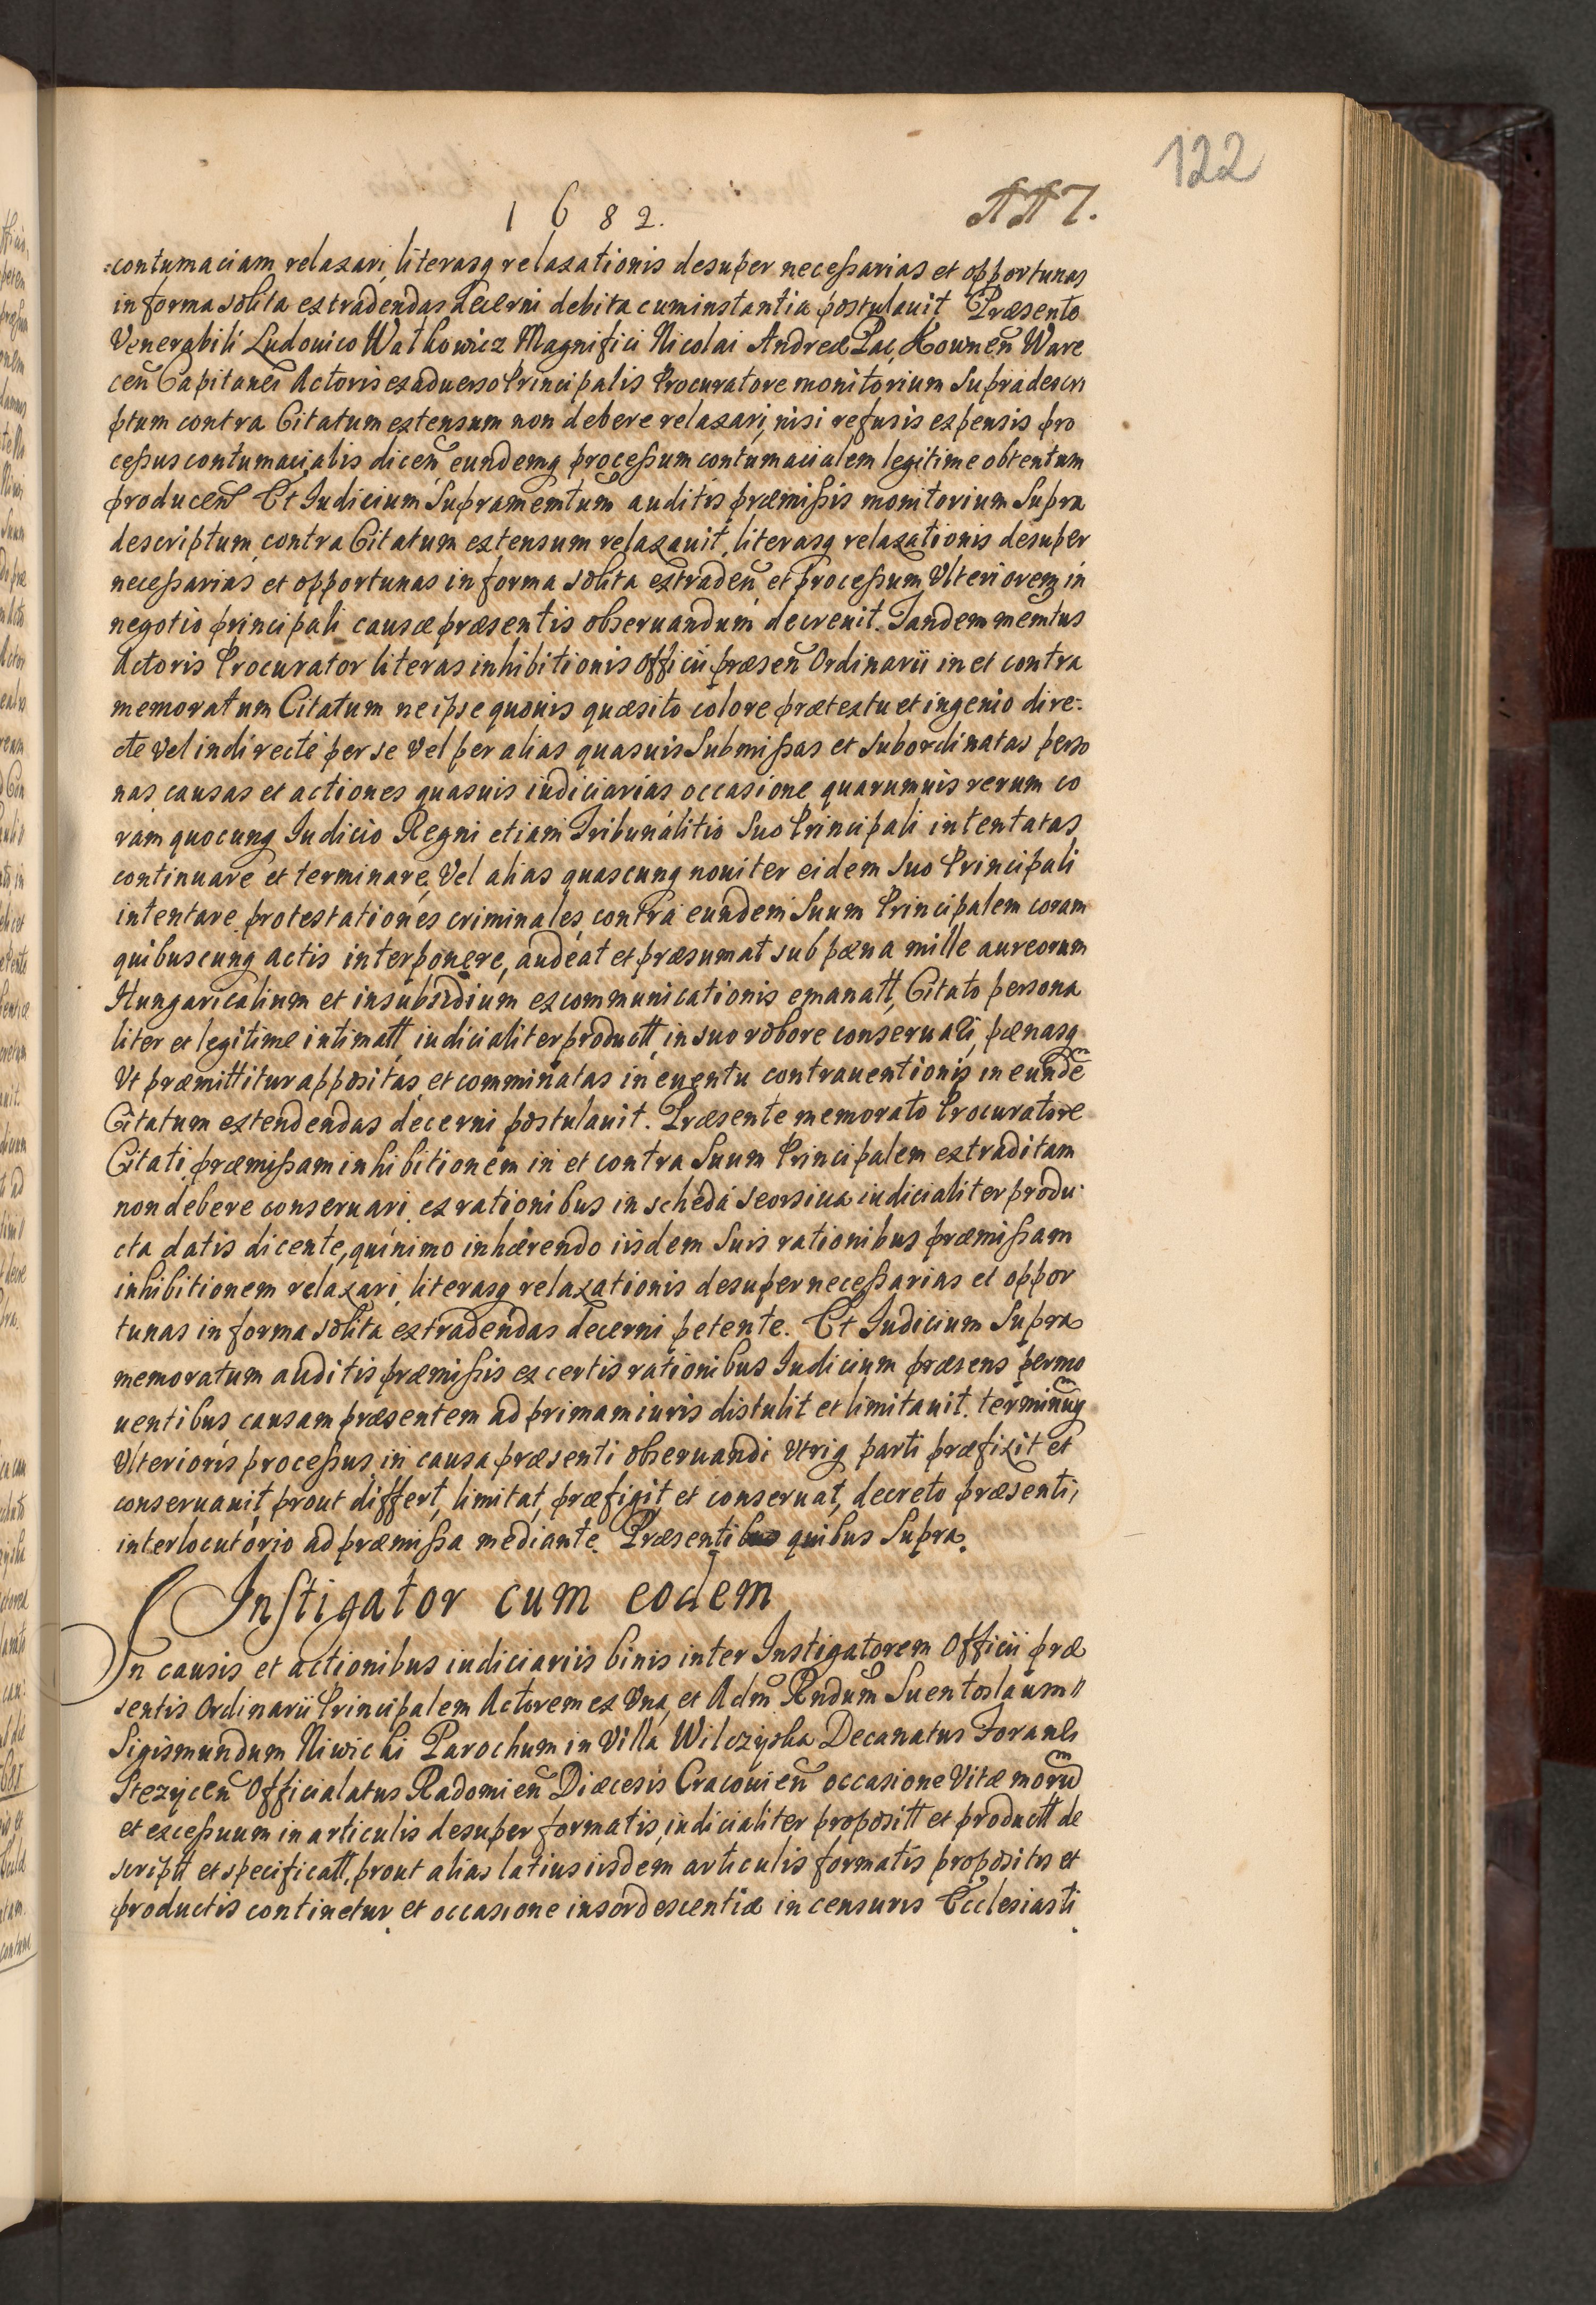 122
1682.
AA7.
:contumaciam relaxari, literasq relaxationis desuper necessarias et opportunas
in forma solita extradendas decerni debita cum instantia postulauit Præsente
Venerabili Ludouico Watkowicz Magnifici Nicolai Andreæ Pac, Kownen̄ Ware
cen̄ Capitanei Actoris ex aduerso Principalis Procuratore monitorium Supra descri
ptum contra Citatum extensum non debere relaxari, nisi refusis expensis pro
cessus contumacialis dicen̄ eundemq processum contumacialem legitime obtentum
producen̄ Et Iudicium Supramemtum auditis præmissis monitorium Supra
descriptum contra Citatum extensum relaxauit, literasq relaxationis desuper
necessarias et opportunas in forma solita extraden̄ et processum Vlteriorem in
negotio principali causæ præsentis obseruandum decreuit. Tandem memtus
Actoris Procurator literas inhibitionis Officii præsen̄ Ordinarii in et contra
memoratum Citatum ne ipse quouis quæsito colore prætextu et ingenio dire:
cte vel indirecte per se vel per alias quasuis Submissas et Subordinatas perso
nas causas et actiones quasuis iudiciarias occasione quarumuis rerum co
ram quocunq Iudicio Regni etiam Tribunalitio Suo Principali intentatas
continuare et terminare, Vel alias quascunq nouiter eidem Suo Principali
intentare, protestationes criminales contra eundem Suum Principalem coram
quibuscunq actis interponere, audeat et præsumat sub pæna mille aureorum
Hungaricalium et in subsidium excommunicationis emanatt, Citato persona
liter et legitime intimatt iudicialiter productt, in suo robore conseruari, pænasq
Vt præmittitur appositas et comminatas in euentu contrauentionis in eundē
Citatum extendendas decerni postulauit. Præsente memorato Procuratore
Citati præmissam inhibitionem in et contra Suum Principalem extraditam
non debere conseruari ex rationibus in scheda seorsiua iudicialiter produ
cta datis dicente, quinimo inhærendo iisdem Suis rationibus præmissam
inhibitionem relaxari, literasq relaxationis desuper necessarias et oppor
tunas in forma solita extradendas decerni petente. Et Iudicium Supra
memoratum auditis præmissis ex certis rationibus Iudicium præsens permo
uentibus causam præsentem ad primam iuris distulit et limitauit, terminumq
Vlterioris processus in causa præsenti obseruandi Vtriq parti præfixit et
conseruauit, prout differt, limitat, præfigit, et conseruat, decreto præsenti,
interlocutorio ad præmissa mediante. Præsentibus quibus Supra.
Instigator cum eodem
In causis et actionibus iudiciariis binis inter Instigatorem Officii præ
sentis Ordinarii Principalem Actorem ex Vna, et Adm̄ Rndum̄ Suentoslaum
Sigismundum Niwicki Parochum in Villa Wilczyska Decanatus Foranei
Stezycen̄ Officialatus Radomien̄ Diæcesis Cracouien̄ occasione Vitæ morū
et excessuum in articulis desuper formatis, iudicialiter propositt et productt de
scriptt et specificatt, prout alias latius iisdem articulis formatis propositis et
productis continetur et occasione insordescentiæ in censuris Ecclesiasti